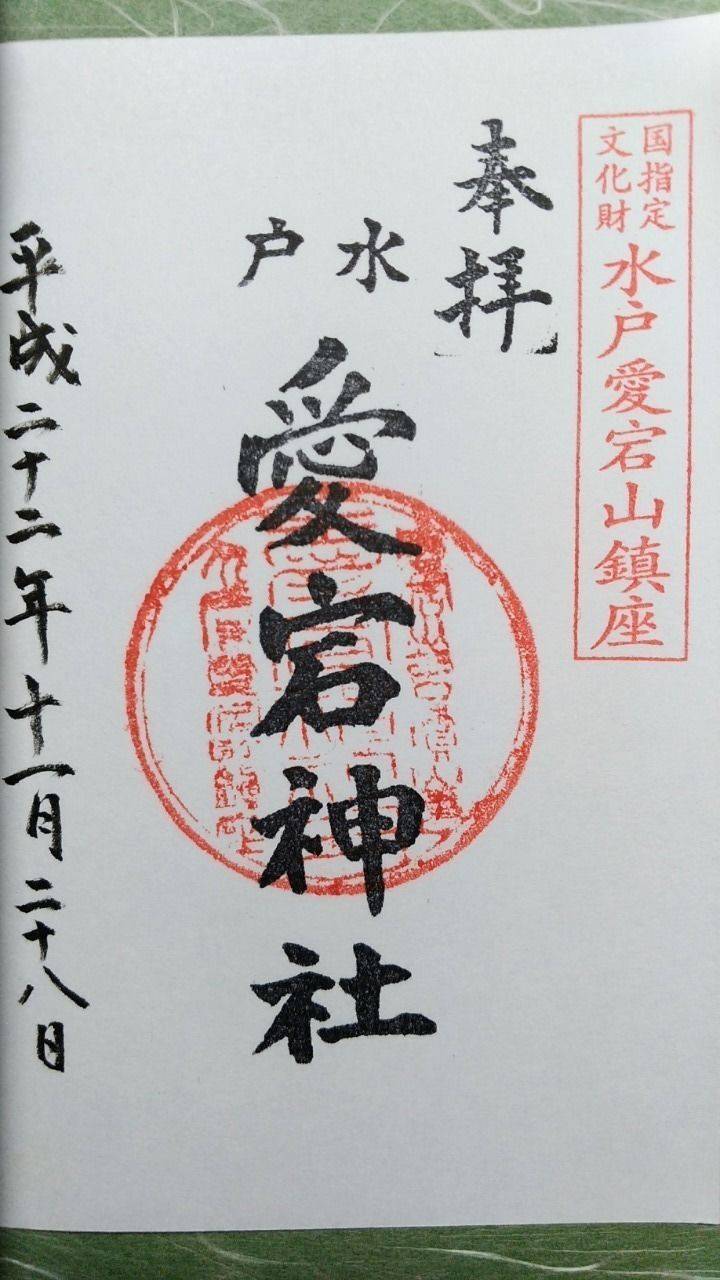 国指定
文化財
水戸愛宕山鎮座
奉拝
水戸
愛宕神社
平成二十二年十一月二十八日